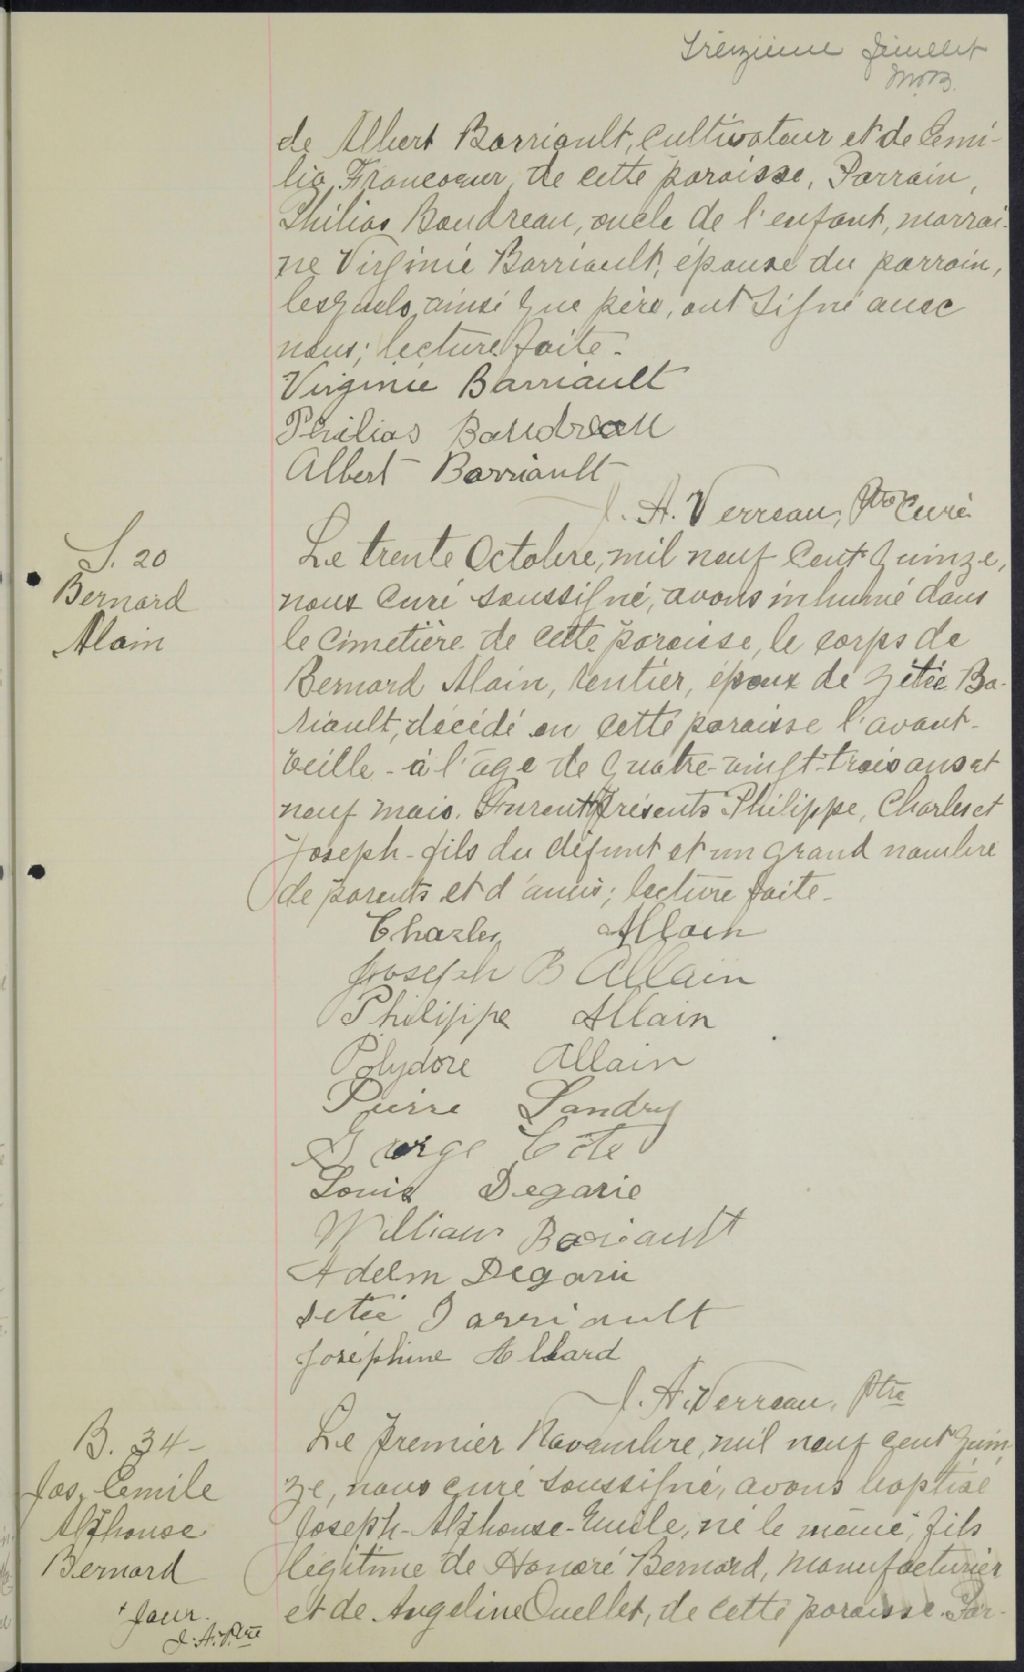 Treizième feuillet
M.B.
de Albert Barriault, cultivateur et de Cémi-
lia Francoeur, de cette paroisse, Parrain,
Philias Boudreau, oncle de l'enfant, marrai-
ne Virginie Barriault, épouse du parrain,
lesquels, ainsi que père, ont signé avec
nous; lecture faite.
Virginie Barriault
Philias Boudreau
Albert Barriault
J. A. Verreau, Ptre Curé
S. 20
Bernard
Alain
Le trente Octobre, mil neuf cent quinze,
nous curé soussigné, avons inhumé dans
le cimetière de cette paroisse, le corps de
Bernard Alain, rentier, époux de Zétée Ba-
riault, décédé en cette paroisse l'avant-
veille - à l'âge de quatre-vingt-trois ans et
neuf mois. Furent présents Philippe, Charles et
Joseph - fils du défunt et un grand nombre
de parents et d'amis; lecture faite -
Charles Allain
Joseph B Allain
Philippe Allain
Polydore Allain
Pierre Landry
George Cote
Louis Degarie
William Bariault
Adelm Degarie
Zetée Barriault
Joséphine Allard
J. A. Verreau, Ptre
B. 34 -
Jos. Cemile
Alphonse
Bernard
Le premier Novembre, mil neuf cent quin-
ze, nous curé soussigné, avons baptisé
Joseph-Alphonse-Emile, né le même, fils
légitime de Honoré Bernard, manufacturier
et de Angeline Ouellet, de cette paroisse. Par-
+ jour.
J. A. V. Ptre